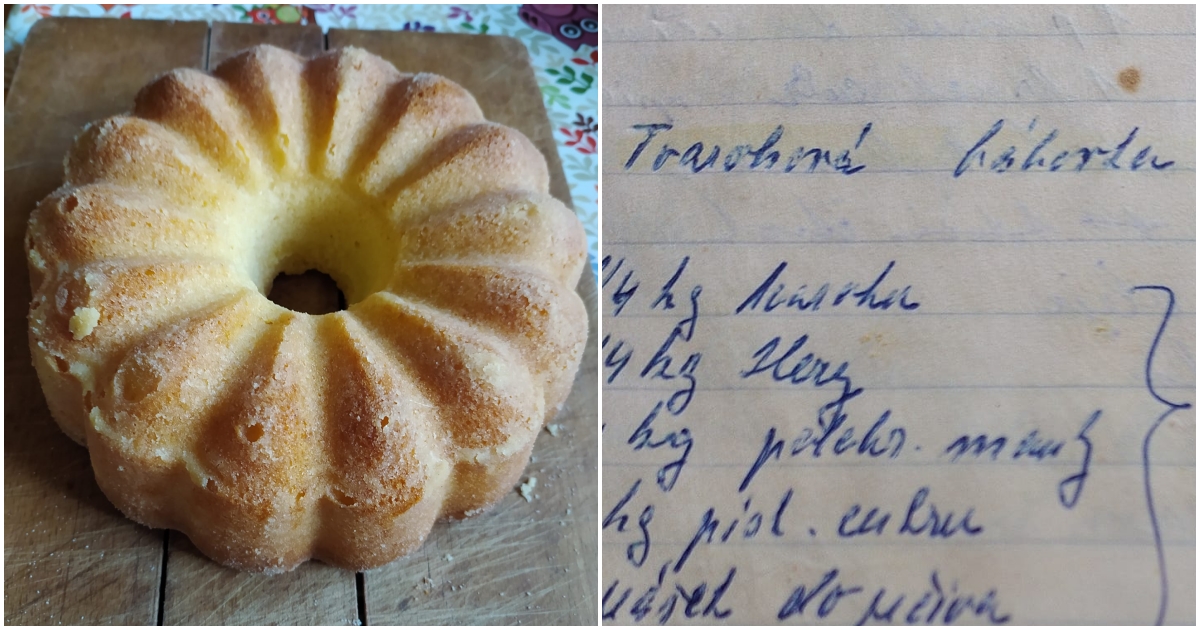 Tvarohová bábovka
1/4 kg tvarohu
1/4 kg Hery
kg polohr. mouky
kg písk. cukru
prášek do pečiva